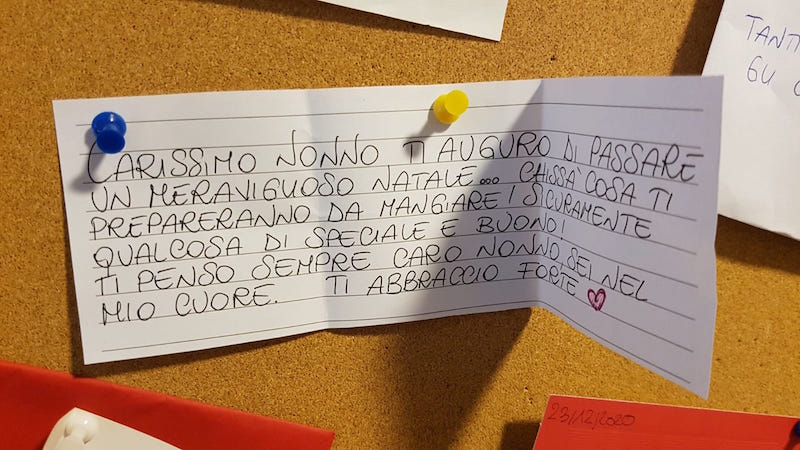 CARISSIMO NONNO TI AUGURO DI PASSARE
UN MERAVIGLIOSO NATALE... CHISSA' COSA TI
PREPARERANNO DA MANGIARE! SICURAMENTE
QUALCOSA DI SPECIALE E BUONO!
TI PENSO SEMPRE CARO NONNO, SEI NEL
MIO CUORE. TI ABBRACCIO FORTE
TANTI
GLI
23/12/2020